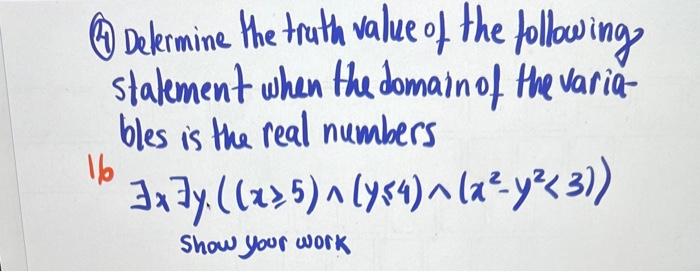 ④ Determine the truth value of the following
statement when the domain of the varia-
bles is the real numbers
16
∃x∃y.((x≥5)∧(y≤4)∧(x²-y²<3))
Show your work